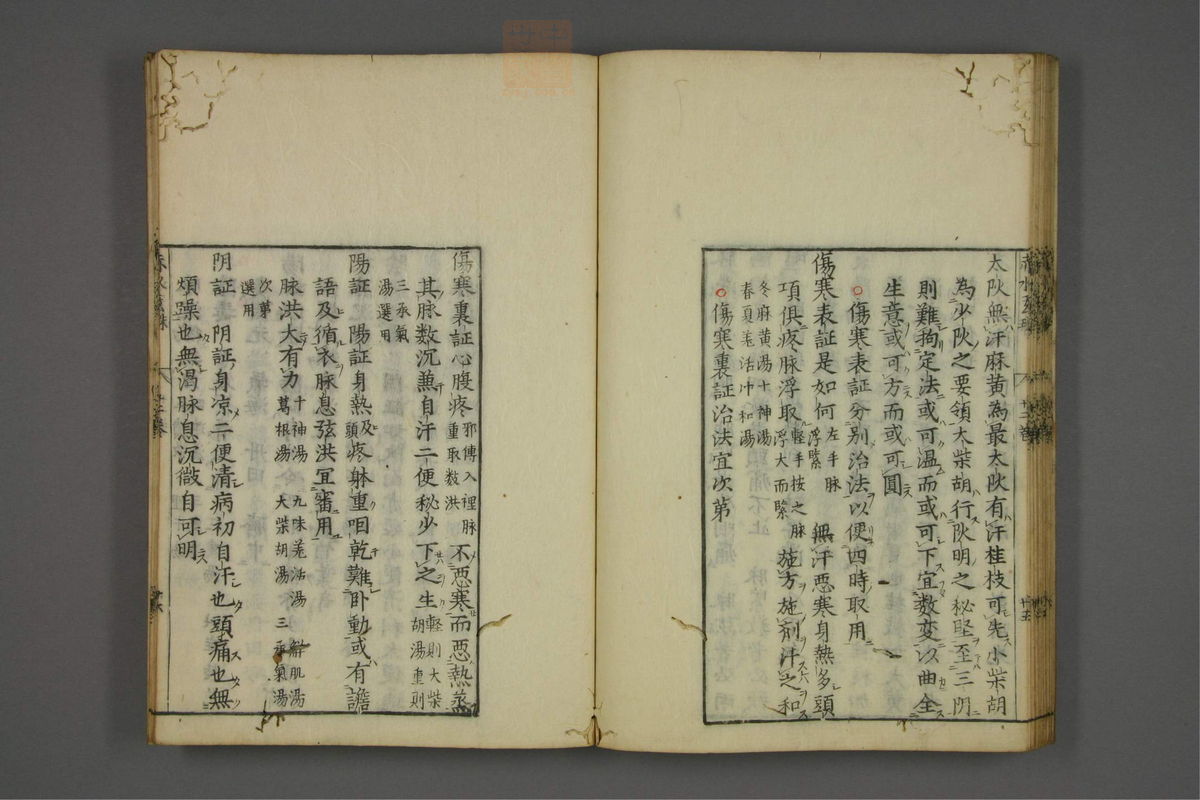 太阦無汗麻黄為最太阦有汗桂枝可先小柴胡
為少阦之要領大柴胡行阦明之秘堅至三阴
則難拘定法或可温而或可下宜数変以曲全
生意或可方而或可圓
傷寒表証分別治法以便四時取用
傷寒表証是如何 左手脉浮緊 無汗悪寒身熱多頭
項俱疼脉浮取 軽手按之脉浮大而緊 施方施劑汗之和
冬麻黄湯十神湯
春夏羗活冲和湯
傷寒裏証治法宜次第
傷寒裏証心腹疼 邪傳入裡脉重取数洪 不悪寒而悪熱蒸
其脉数沉兼自汗二便秘少下之生 軽則大柴胡湯重則
三承氣湯選用
陽証 陽証身熱及頭疼躰重咽乾難卧動或有譫
語及循衣脉息弦洪宜審用
脉洪大有力 十神湯 九味羗活湯 解肌湯
葛根湯 大柴胡湯 三承氣湯
次第選用
阴証 阴証身凉二便清病初自汗也頭痛也無
煩躁也無渴脉息沉微自可明